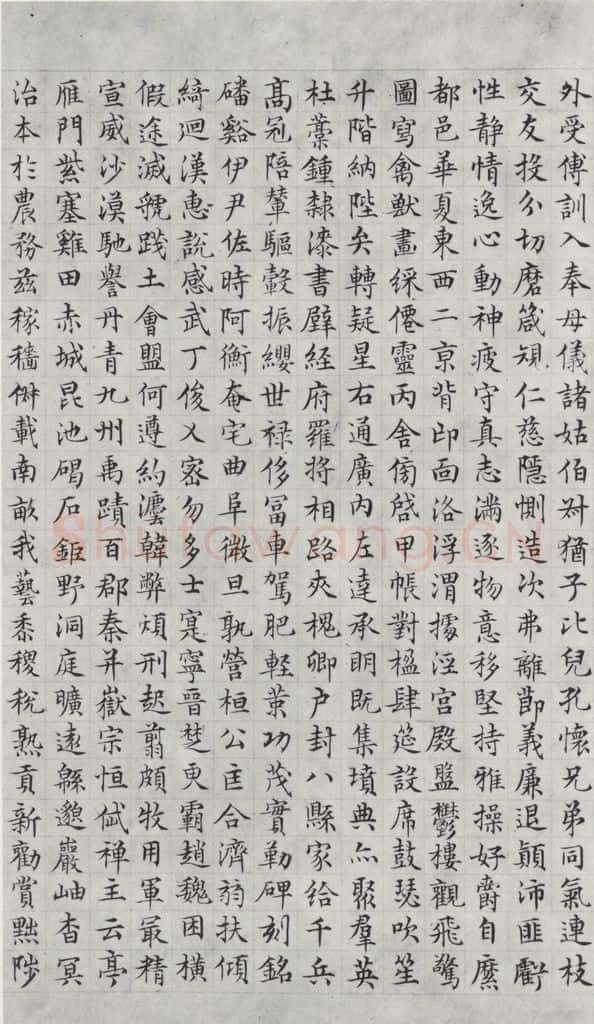 外受傅訓入奉母儀諸姑伯叔猶子比兒孔懷兄弟同氣連枝
交友投分切磨箴規仁慈隱惻造次弗離節義廉退顛沛匪虧
性靜情逸心動神疲守真志滿逐物意移堅持雅操好爵自縻
都邑華夏東西二京背邙面洛浮渭據涇宮殿盤鬱樓觀飛驚
圖寫禽獸畫綵僊靈丙舍傍啓甲帳對楹肆筵設席鼓瑟吹笙
升階納陛弁轉疑星右通廣內左達承明既集墳典亦聚羣英
杜藁鍾隸漆書壁經府羅將相路夾槐卿户封八縣家給千兵
髙冠陪輦驅轂振纓世禄侈冨車駕肥輕策功茂實勒碑刻銘
磻谿伊尹佐時阿衡奄宅曲阜微旦孰營桓公匡合濟弱扶傾
綺迴漢惠說感武丁俊乂密勿多士寔寧晉楚更霸趙魏困橫
假途滅虢踐土會盟何遵約灋韓弊煩刑起翦頗牧用軍最精
宣威沙漠馳譽丹青九州禹蹟百郡秦并嶽宗恒岱禅主云亭
雁門紫塞雞田赤城昆池碣石鉅野洞庭曠遠緜邈巖岫杳冥
治本於農務兹稼穡俶載南畝我藝黍稷稅熟貢新勸賞黜陟
Shufawang.CN